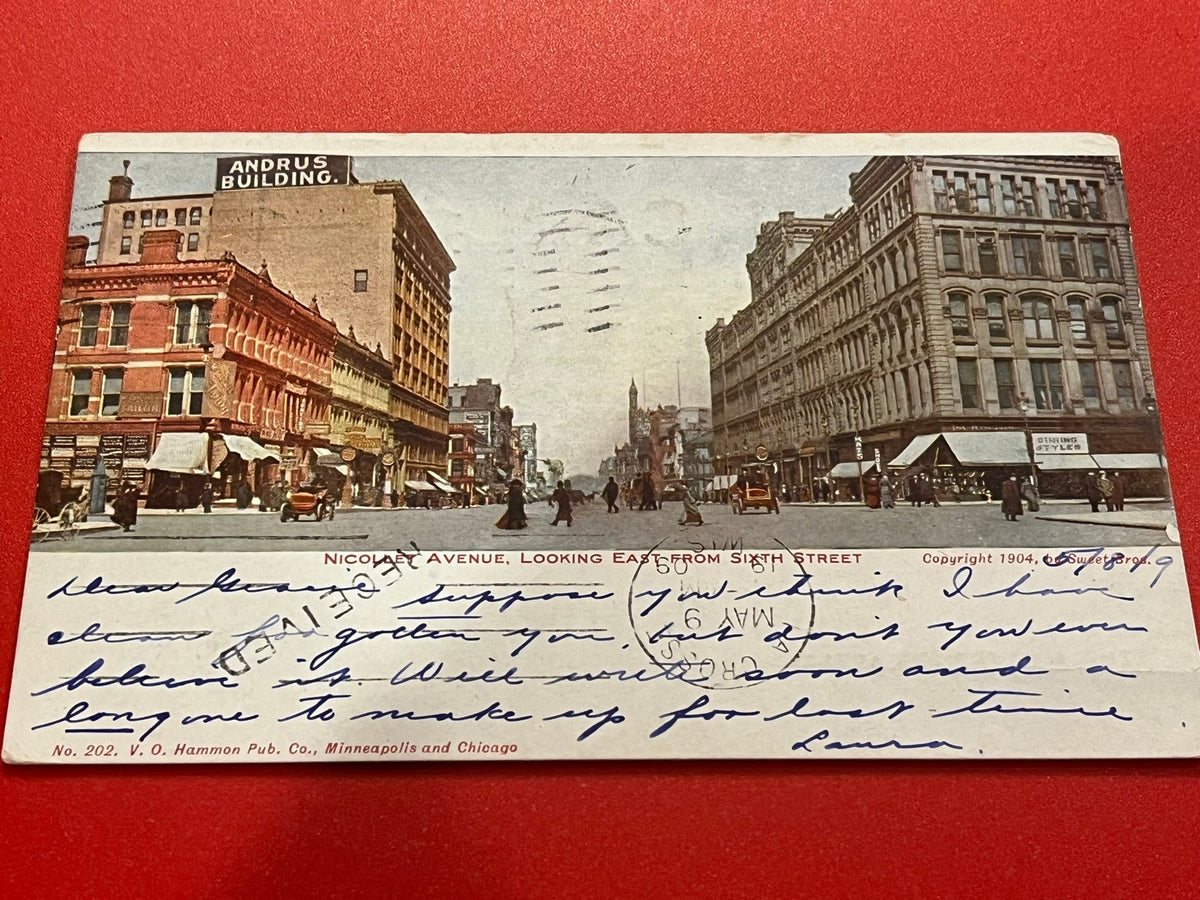 ANDRUS
BUILDING.
DINING
STYLES
NICOLLET AVENUE, LOOKING EAST FROM SIXTH STREET
Copyright 1904, by Sweet Bros.
5/8/9
RECEIVED
LA CROSSE
MAY 9
09
WIS
Dear George Suppose you think I have
clean forgotten you, but don't you ever
believe it. Will write soon and a
long one to make up for last time
Laura.
No. 202. V. O. Hammon Pub. Co., Minneapolis and Chicago